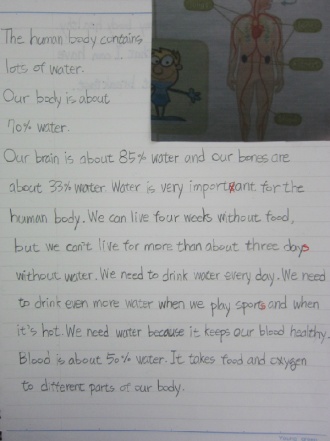 The human body contains
lots of water.
Our body is about
70% water.
Our brain is about 85% water and our bones are
about 33% water Water is very important for the
human body. We can live four weeks without food,
but we can't live for more than about three days
without water. We need to drink water every day. We need
to drink even more water when we play sports and when
it's hot. We need water because it keeps our blood healthy.
Blood is about 50% water. It takes food and oxygen
to different parts of our body.